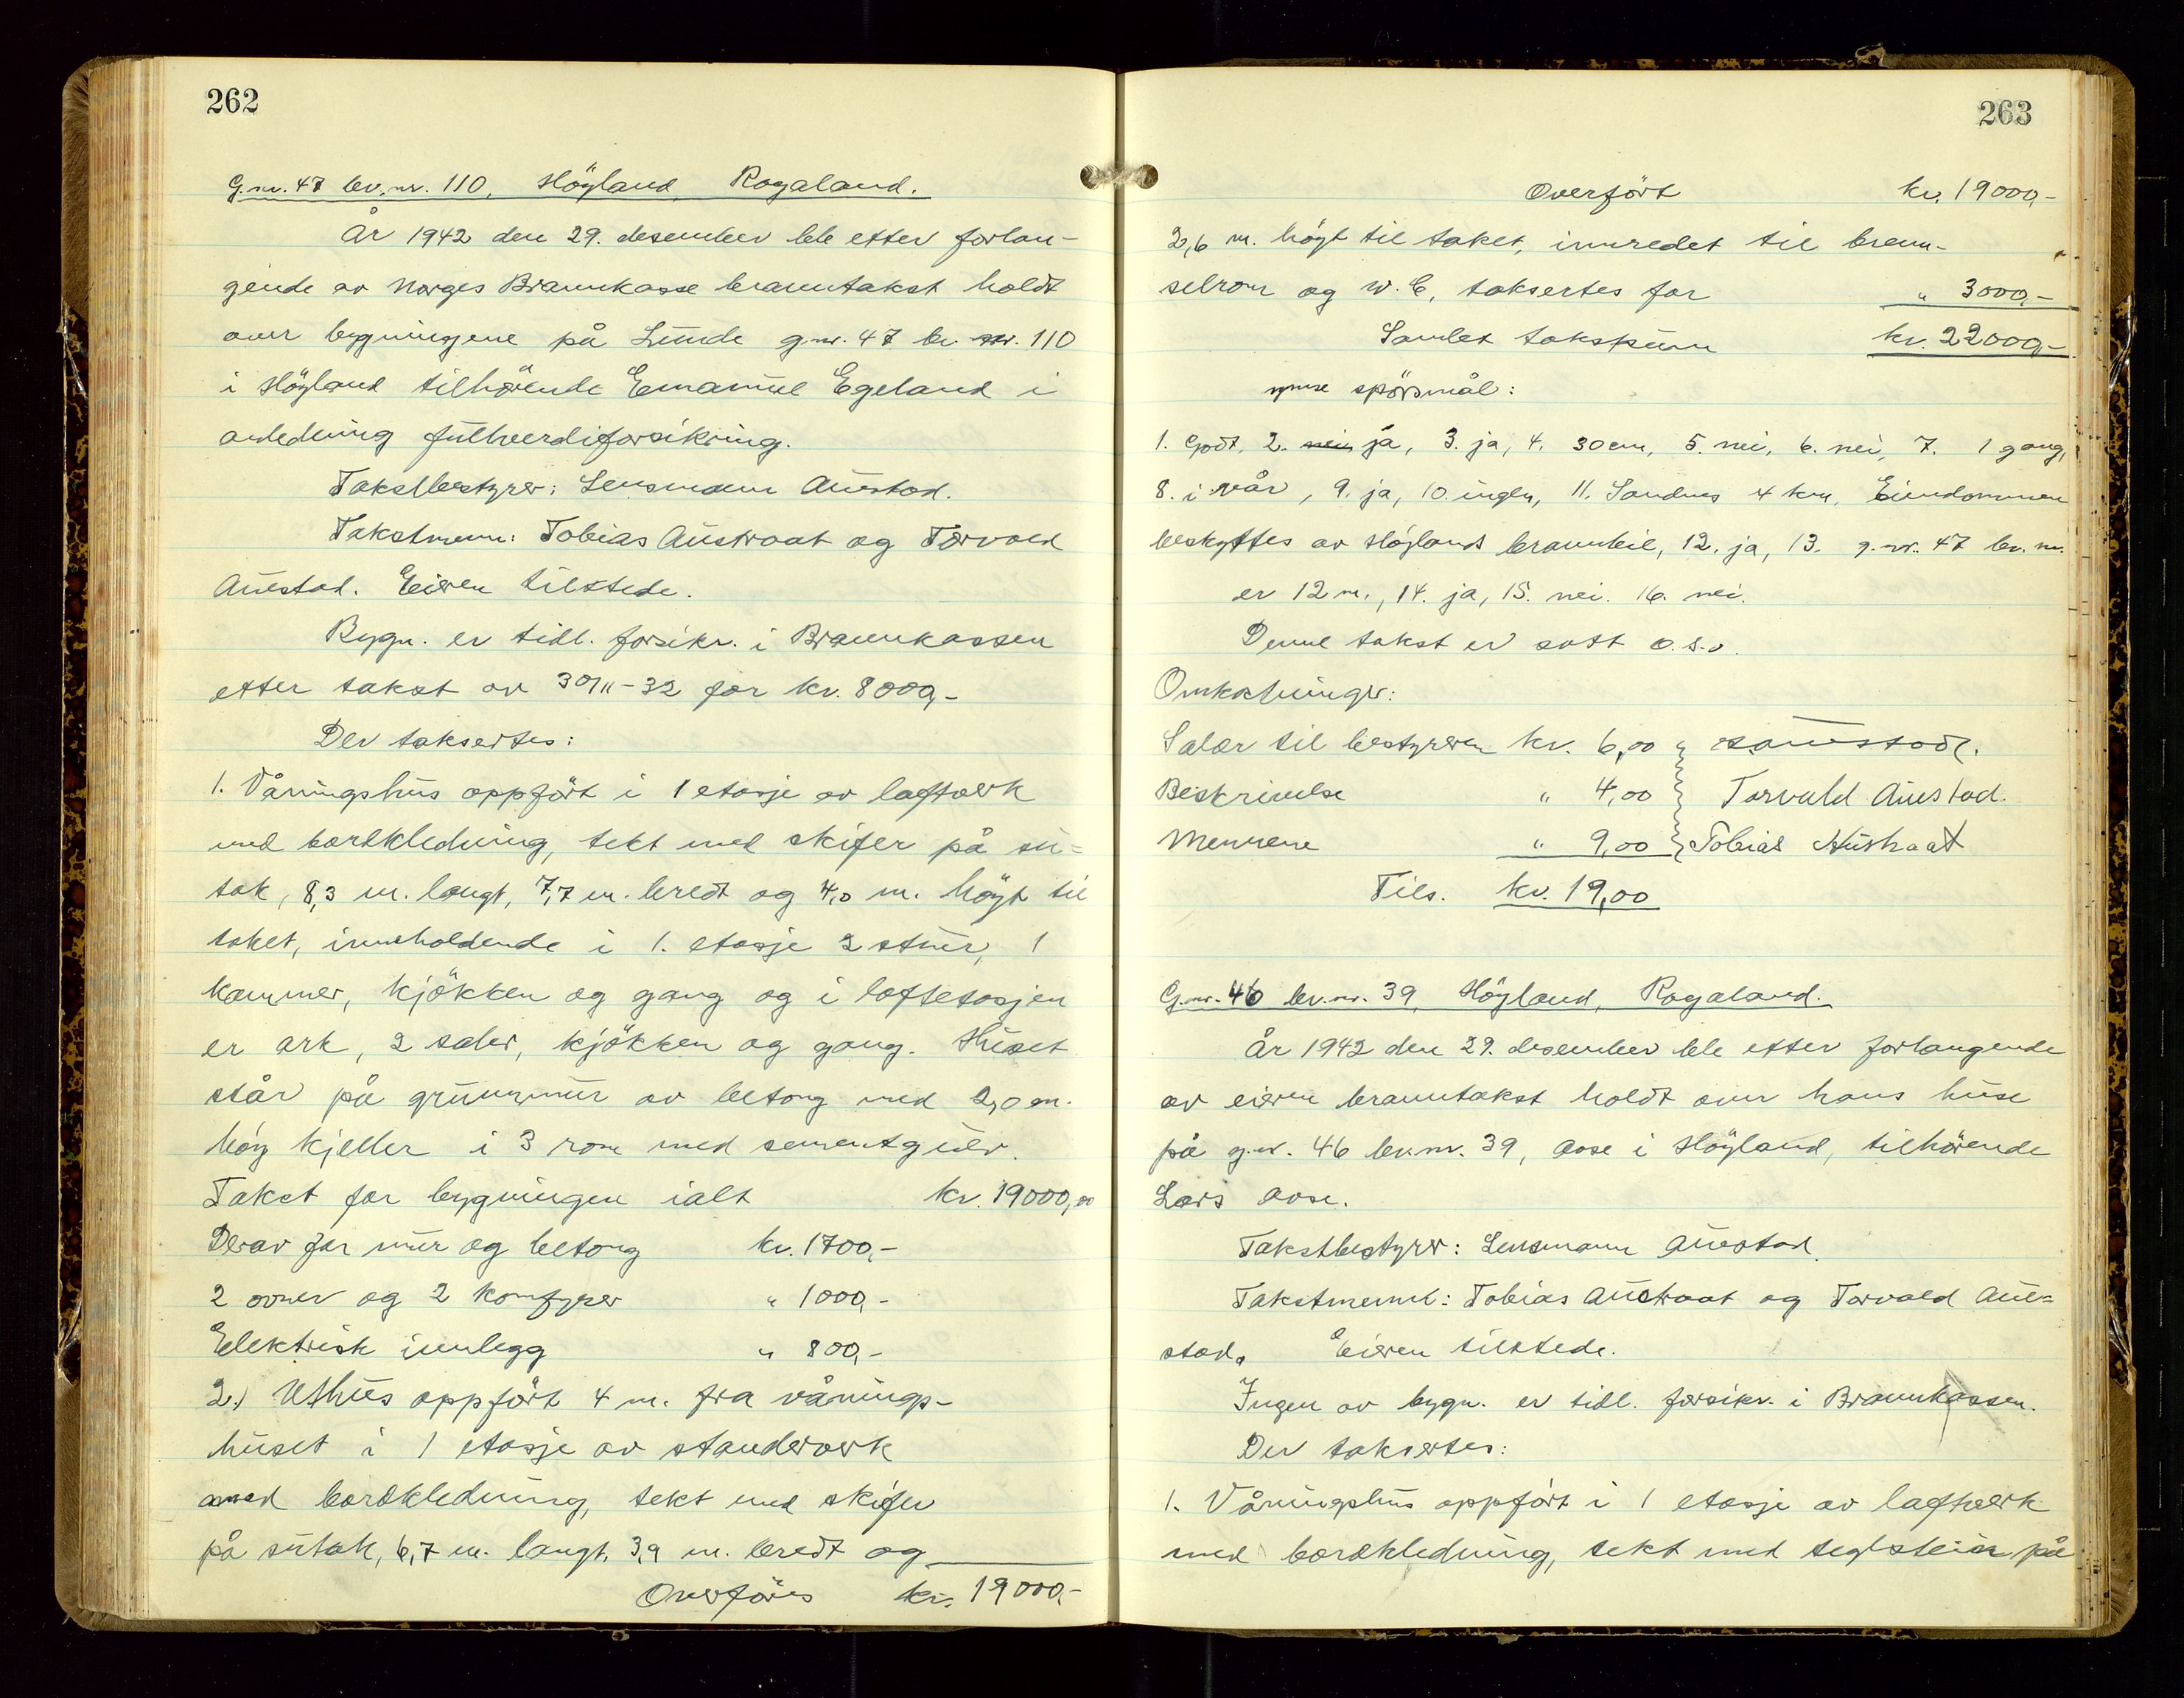 262
G.nr. 47 br.nr. 110, Höyland, Rogaland.
År 1942 den 29. desember ble etter forlan-
gende av Norges Brannkasse branntakst holdt
over bygningene på Lunde g.nr. 47 br. nr. 110
i Höyland tilhörende Emanuel Egeland i
anledning fullverdiforsikring.
Takstbestyrer: Lensmann Austad.
Takstmenn: Tobias Austraat og Torvald
Austad. Eieren tilstede.
Bygn. er tidl. forsikr. i Brannkassen
etter takst av 30/11-32 for kr. 8000,-
Der taksertes:
1. Våningshus oppfört i 1 etasje av laftverk
med bordkledning, tekt med skifer på su-
tak, 8,3 m. langt, 7,7 m. bredt og 4,0 m. höyt til
taket, inneholdende i 1. etasje 2 stuer, 1
kammer, kjökken og gang og i loftetasjen
er ark, 2 saler, kjökken og gang. Huset
står på grunnmur av betong med 2,0 m.
höy kjeller i 3 rom med sementgulv.
Takst for bygningen ialt kr. 19000,00
Derav for mur og betong kr. 1700,-
2 ovner og 2 komfyrer " 1000,-
Elektrisk innlegg " 800,-
2.) Uthus oppfört 4 m. fra vånings-
huset i 1 etasje av standerverk
med bordkledning, tekt med skifer
på sutak, 6,7 m. langt, 3,9 m. bredt og
Overföres kr. 19000,-
263
Overfört kr. 19000,-
2,6 m. höyt til taket, innredet til bren-
selrom og W.C, taksertes for " 3000,-
Samlet takstsum kr. 22000,-
ymse spörsmål:
1. Godt, 2. nei ja, 3. ja, 4. 30 cm, 5. nei, 6. nei, 7. 1 gang,
8. i vår, 9. ja, 10. ingen, 11. Sandnes 4 km, Eiendommen
beskyttes av Höylands brannbil, 12. ja, 13. g.nr. 47 br. nr.
er 12 m., 14. ja, 15. nei. 16. nei.
Denne takst er satt o.s.v.
Omkostninger:
Salær til bestyreren kr. 6,00 Austad.
Beskrivelse " 4,00 Torvald Austad.
Mennene " 9,00 Tobias Austraat
Tils. kr. 19,00
G.nr. 46 br.nr. 39, Höyland, Rogaland.
År 1942 den 29. desember ble etter forlangende
av eieren branntakst holdt over hans huse
på g.nr. 46 br.nr. 39, Aase i Höyland, tilhörende
Lars Aase.
Takstbestyrer: Lensmann Austad.
Takstmenn: Tobias Austraat og Torvald Au=
stad. Eieren tilstede.
Ingen av bygn. er tidl. forsikr. i Brannkassen.
Der taksertes:
1. Våningshus oppfört i 1 etasje av laftverk
med bordkledning, tekt med teglstein på